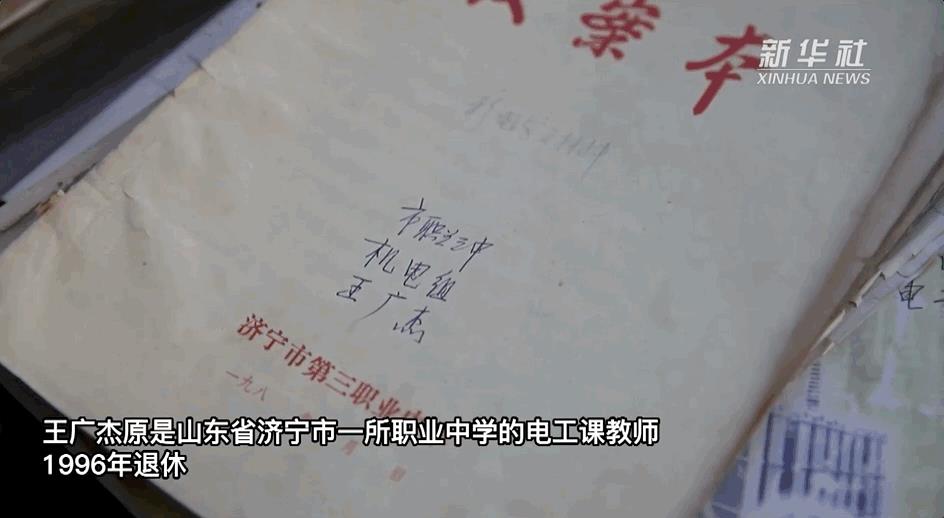 案本
新华社
XINHUA NEWS
市职三中
机电组
王广杰
电工
济宁市第三职业中
一九八
月
王广杰原是山东省济宁市一所职业中学的电工课教师
1996年退休